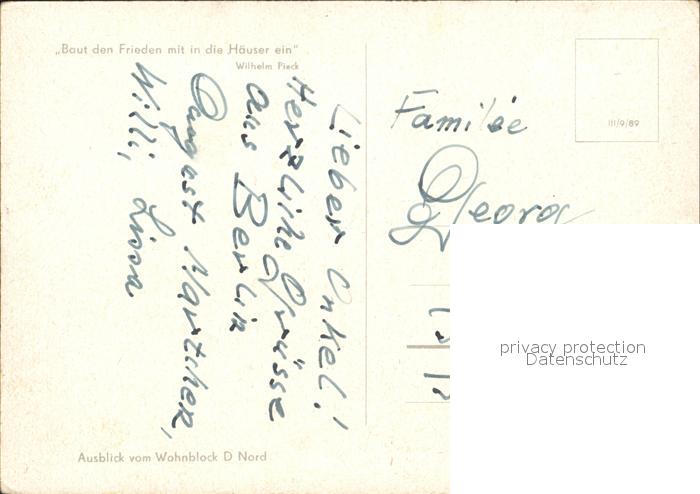 „Baut den Frieden mit in die Häuser ein"
Wilhelm Pieck
Lieber Onkel!
Herzliche Grüsse
aus Berlin
August
Willi, Lissa
Familie
Georg
III/9/89
Ausblick vom Wohnblock D Nord
privacy protection
Datenschutz